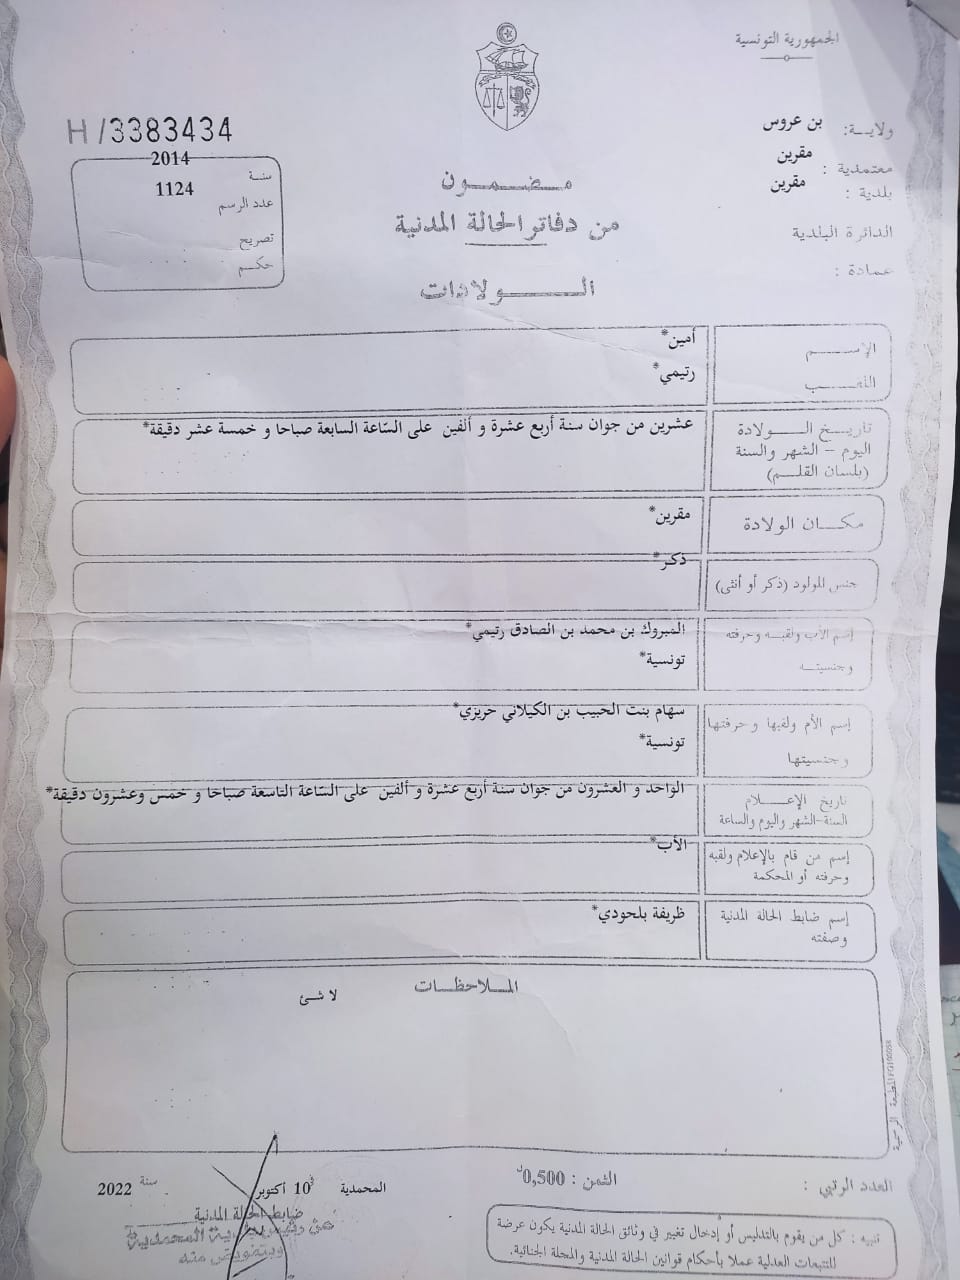 الجمهورية التونسية
H/3383434
ولايـــة: بن عروس
معتمدية : مقرين
بلدية : مقرين
الدائرة البلدية
عمادة :
سنة 2014
عدد الرسم 1124
تصريح
حكـــم
مـضـمـــون
من دفاتر الحالة المدنية
الـــــولادات
الإســـــم أمين*
اللقـــــب رتيمي*
تاريـــخ الــــولادة
اليوم – الشهر والسنة
(بلسان القلـــم)
عشرين من جوان سنة أربع عشرة و ألفين على السّاعة السابعة صباحا و خمسة عشر دقيقة*
مكـــان الولادة مقرين*
جنس المولود (ذكر أو أنثى) ذكر*
إسم الأب ولقبــه وحرفته المبروك بن محمد بن الصادق رتيمي*
وجنسيتــه تونسية*
إسم الأم ولقبها وحرفتها سهام بنت الحبيب بن الكيلاني حريزي*
وجنسيتها تونسية*
تاريخ الإعـــــلام الواحد و العشرون من جوان سنة أربع عشرة و ألفين على السّاعة التاسعة صباحا و خمس وعشرون دقيقة*
السنة-الشهر واليوم والساعة
إسم من قام بالإعلام ولقبه الأب*
وحرفته أو المحكمة
إسم ضابط الحالة المدنية ظريفة بلحودي*
وصفته
المــلاحظــات
لا شئ
المطبعة الرسمية
العدد الرتبي :
الثمن : 0,500د
المحمدية في 10 أكتوبر سنة 2022
ضابط الحالة المدنية
وبتفويض منه
تنبيه : كل من يقوم بالتدليس أو إدخال تغيير في وثائق الحالة المدنية يكون عرضة
للتتبعات العدلية عملا بأحكام قوانين الحالة المدنية والمجلة الجنائية.